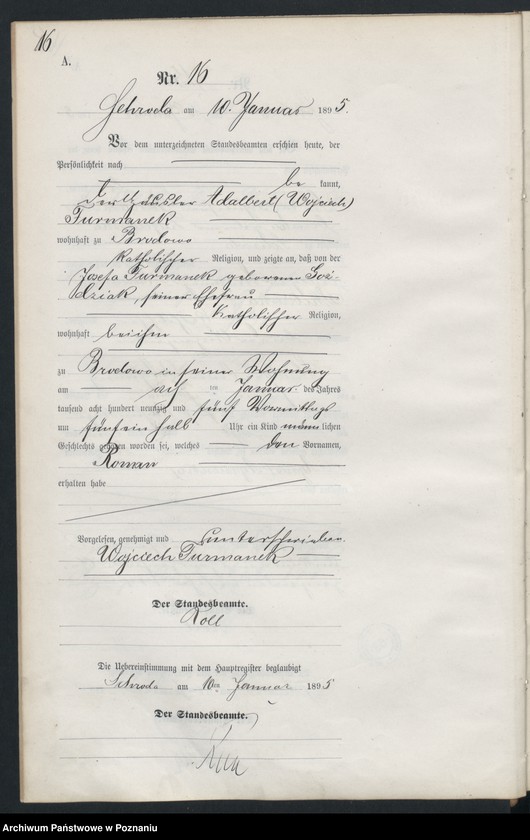 16
A.
Nr. 16
Schroda am 10. Januar 1895.
Vor dem unterzeichneten Standesbeamten erschien heute, der
Persönlichkeit nach
be kannt,
der Häusler Adalbert (Wojciech)
Turmanek
wohnhaft zu Brodowo
katholischer Religion, und zeigte an, daß von der
Josefa Turmanek geborenen Goź-
dziak, seiner Ehefrau
katholischer Religion,
wohnhaft bei ihm
zu Brodowo in seiner Wohnung
am acht ten Januar des Jahres
tausend acht hundert neunzig und fünf Vormittags
um fünfeinhalb Uhr ein Kind männlichen
Geschlechts geboren worden sei, welches den Vornamen,
Roman
erhalten habe
Vorgelesen, genehmigt und unterschrieben
Wojciech Turmanek
Der Standesbeamte.
Roll
Die Uebereinstimmung mit dem Hauptregister beglaubigt
Schroda am 10ten Januar 1895
Der Standesbeamte.
Archiwum Państwowe w Poznaniu